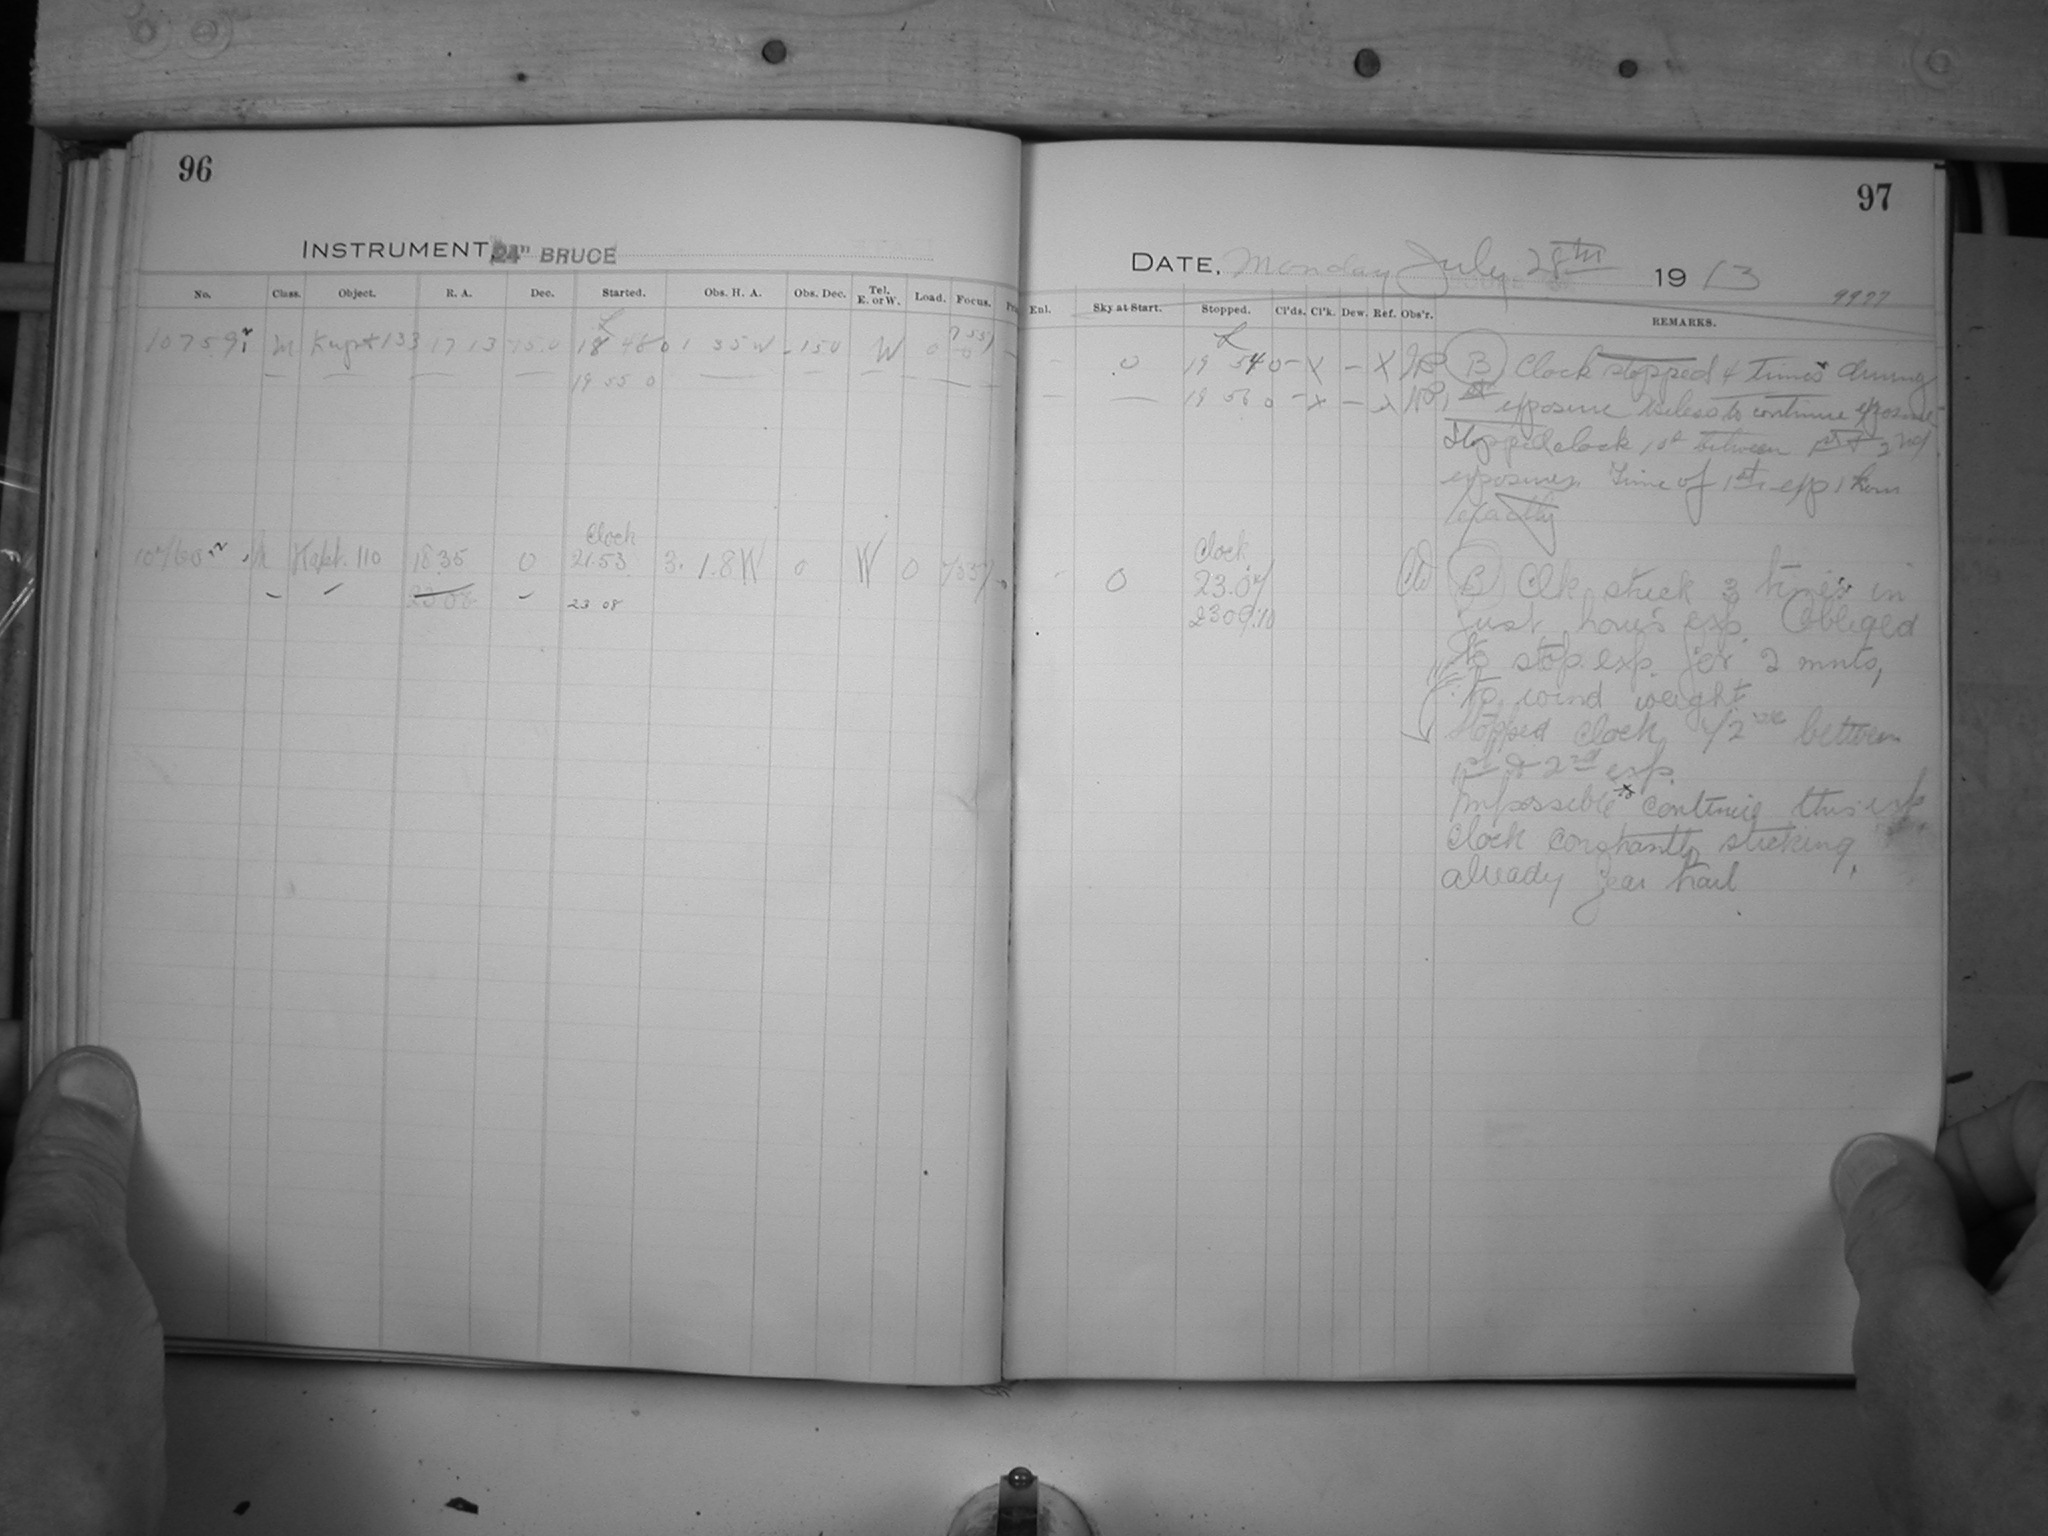 96
INSTRUMENT, 24" BRUCE
No. Class. Object. R. A. Dec. Started. Obs. H. A. Obs. Dec. Tel. E. or W. Load. Focus.
10759 M 133 17 13 -15.0 18 48 0 1 35 W -150 W 0
19 55 0
Clock
Kapt. 110 18.35 0 21.53 3. 1.8 W 0 W 0
23 08 23 08
97
DATE, Monday July 28th 1913
9977
Enl. Sky at Start. Stopped. Cl'ds. Cl'k. Dew. Ref. Obs'r. REMARKS.
0 19 54 0 – X – X B Clock stopped 4 times during
19 56 0 – X – X 1st exposure Useless to continue exposure
Stopped clock between 1st & 2nd
exposures Time of 1st exp 1 hour
exactly
Clock
0 23.07 B Clk stuck 3 times in
2309.10 just hour's exp. Obliged
to stop exp. for 2 mnts,
to wind weight
Stopped clock 1/2 between
1st & 2nd exp.
Impossible to continue this exp
clock constantly sticking,
already fear trail